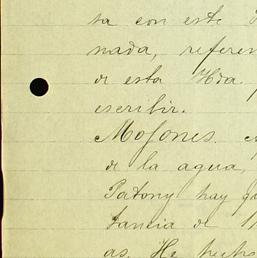 ta con este
nada, referen
de esta Hda.
escribir.
Mojones.
de la agua,
Patony hay qu
tancia de 1
as. He hecho